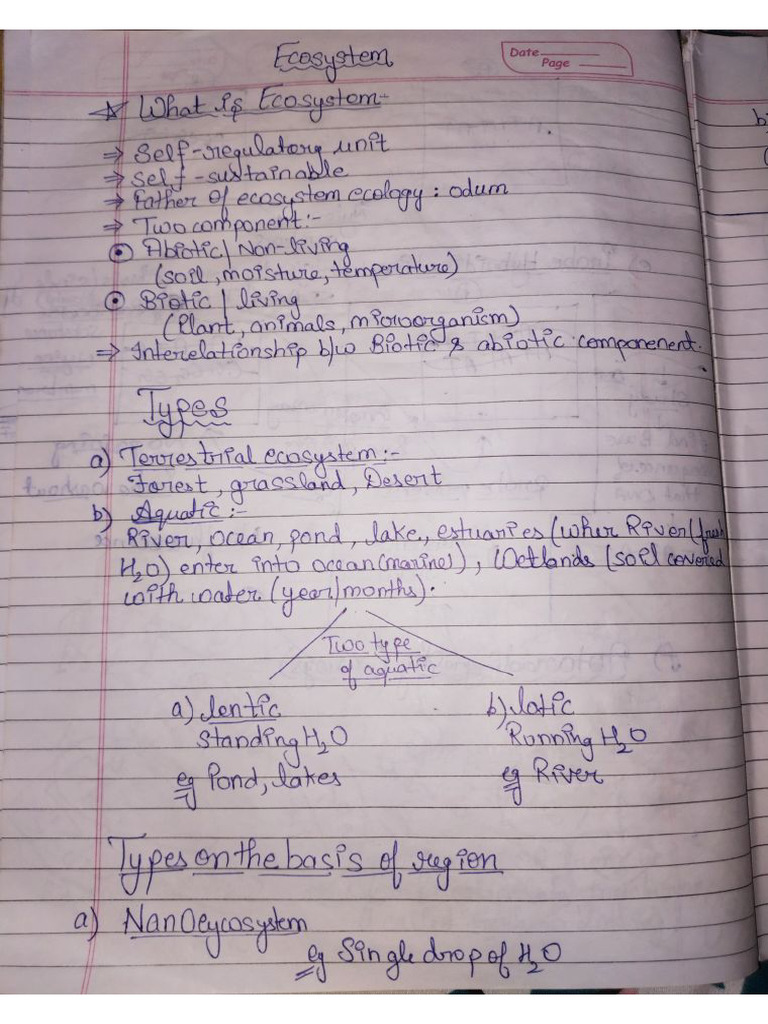 Ecosystem
Date
Page
☆ What is Ecosystem-
⇒ Self-regulatory unit
⇒ Self-sustainable
⇒ Father of ecosystem ecology: odum
⇒ Two component:-
⊙ Abiotic/Non-living
(soil, moisture, temperature)
⊙ Biotic/living
(Plant, animals, microorganism)
⇒ Interelationship b/w Biotic & abiotic componenent.
Types
a) Terrestrial ecosystem:-
Forest, grassland, Desert
b) Aquatic:-
River, ocean, pond, lake, estuaries (wher River (fresh
H₂O) enter into ocean(marine)), Wetlands (soil covered
with water (year/months).
Two type
of aquatic
a) lentic
Standing H₂O
eg Pond, lakes
b) latic
Running H₂O
eg River
Types on the basis of region
a) NanOeycosystem
eg Single drop of H₂O